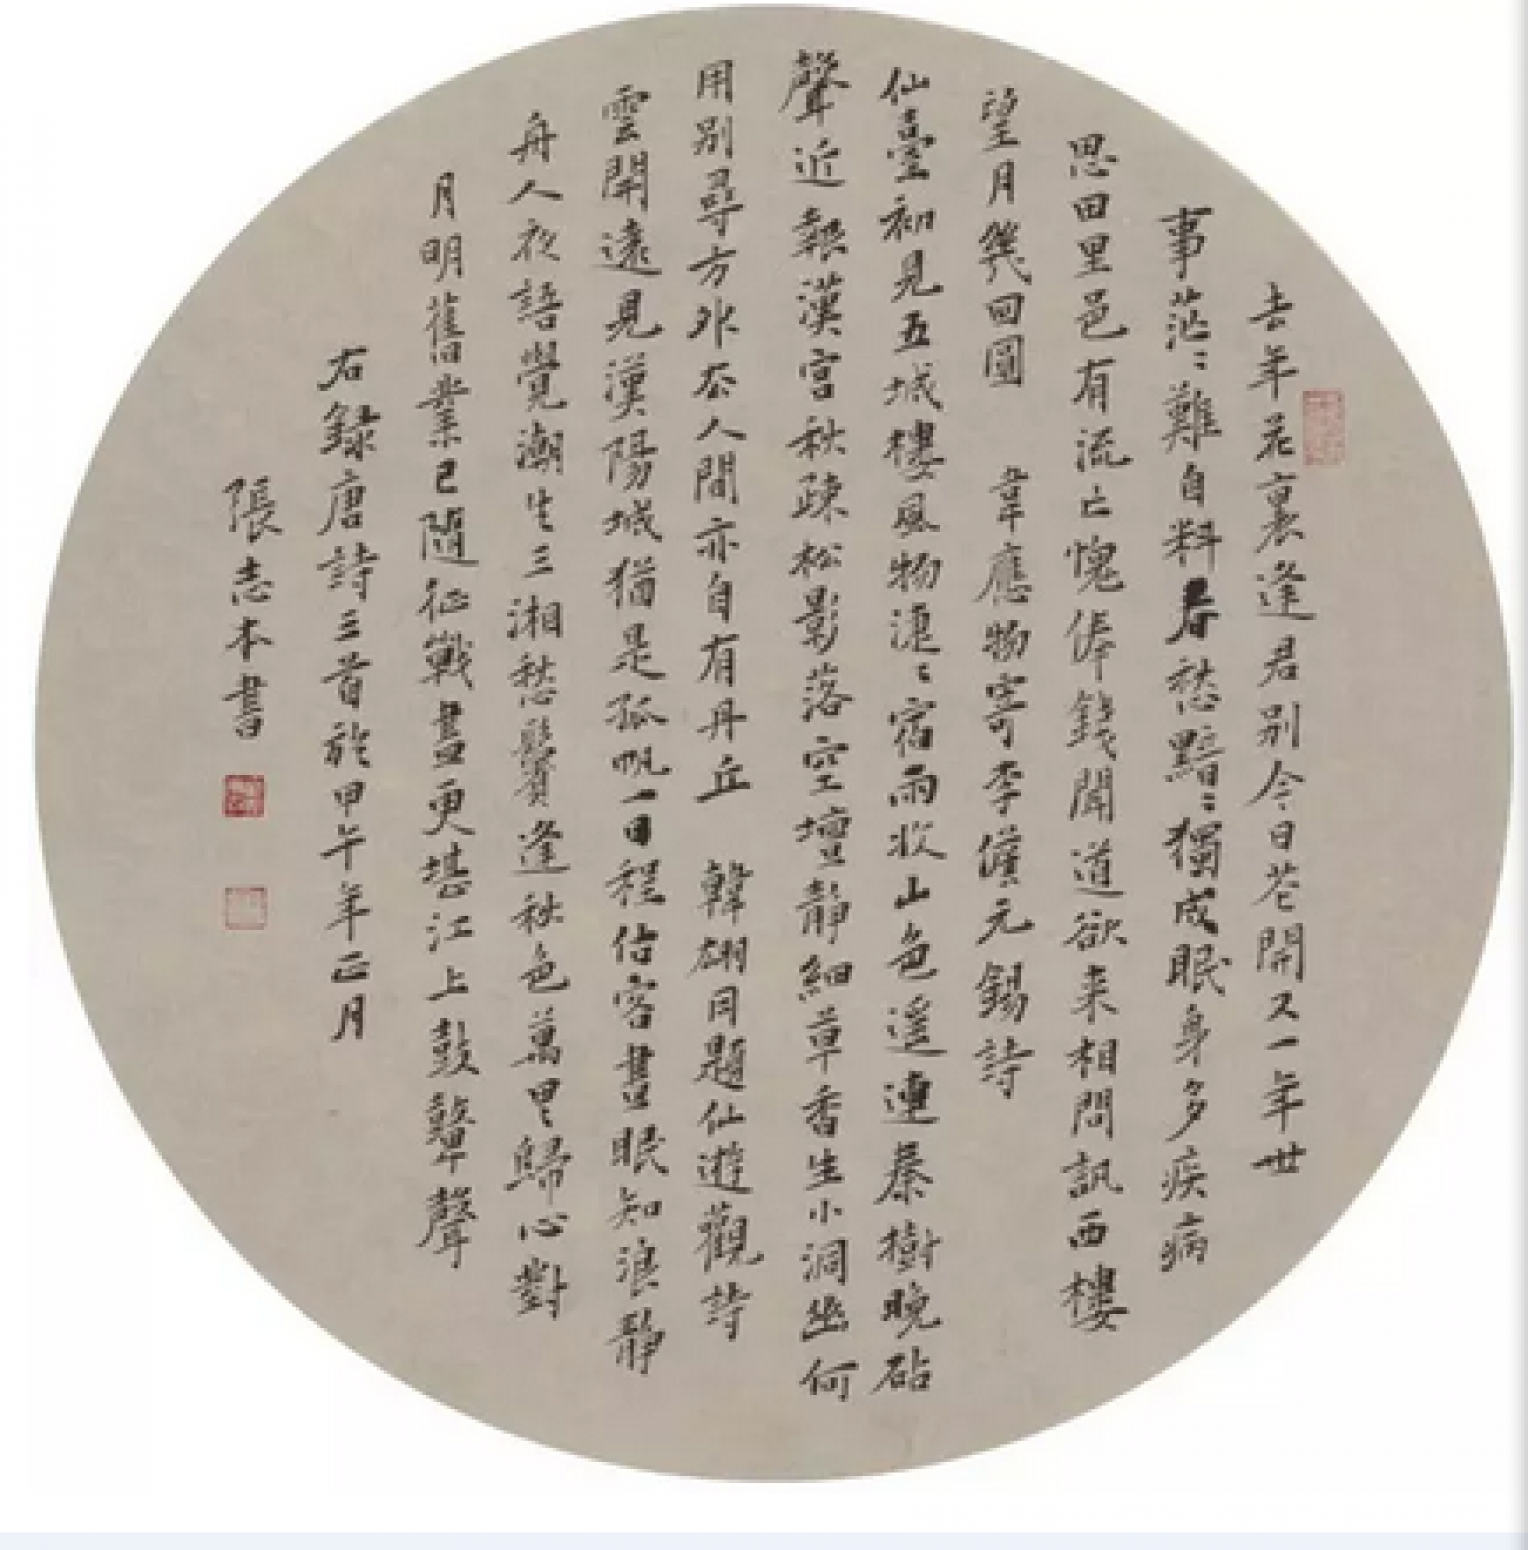 去年花裏逢君別今日花開又一年世
事茫〻難自料春愁黯〻獨成眠身多疾病
思田里邑有流亡愧俸錢聞道欲来相問訊西樓
望月幾回圓 韋應物寄李儋元錫詩
仙臺初見五城樓風物淒〻宿雨收山色遥連秦樹晚砧
聲近報漢宮秋疎松影落空壇靜細草香生小洞幽何
用別尋方外去人間亦自有丹丘 韓翃同題仙遊觀詩
雲開遠見漢陽城猶是孤帆一日程估客晝眠知浪静
舟人夜語覺潮生三湘愁鬢逢秋色萬里歸心對
月明舊業已隨征戰盡更堪江上鼓鼙聲
右録唐詩三首於甲午年正月
張志本書